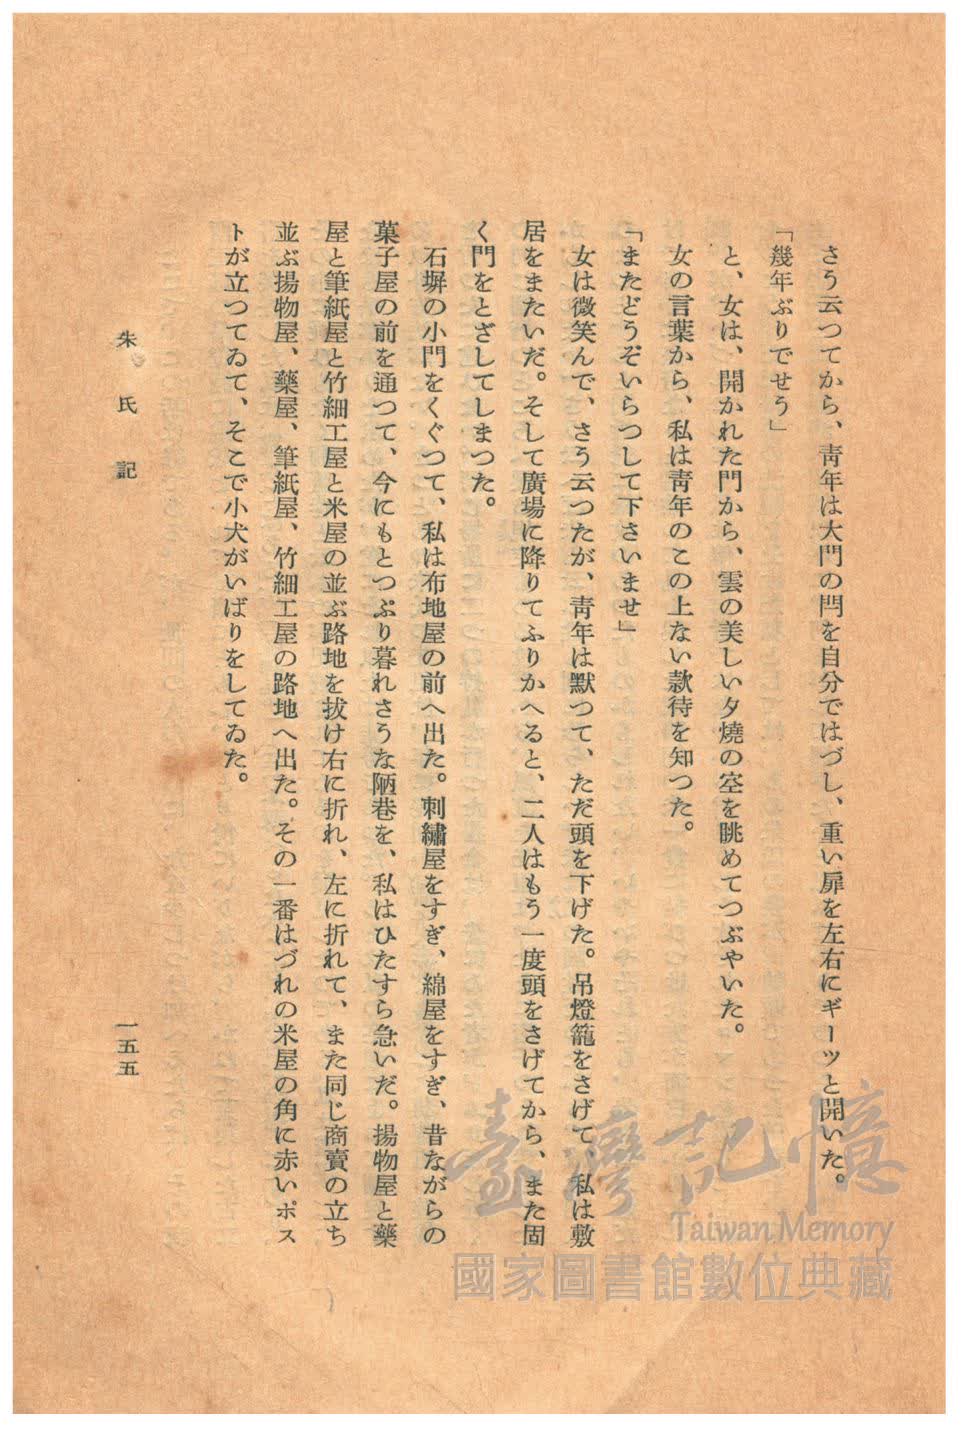 さう云つてから、靑年は大門の閂を自分ではづし、重い扉を左右にギーツと開いた。
「幾年ぶりでせう」
と、女は、開かれた門から、雲の美しい夕燒の空を眺めてつぶやいた。
女の言葉から、私は靑年のこの上ない款待を知つた。
「またどうぞいらつして下さいませ」
女は微笑んで、さう云つたが、靑年は默つて、ただ頭を下げた。吊燈籠をさげて、私は敷
居をまたいだ。そして廣場に降りてふりかへると、二人はもう一度頭をさげてから、また固
く門をとざしてしまつた。
石塀の小門をくぐつて、私は布地屋の前へ出た。刺繡屋をすぎ、綿屋をすぎ、昔ながらの
菓子屋の前を通つて、今にもとつぷり暮れさうな陋巷を、私はひたすら急いだ。揚物屋と藥
屋と筆紙屋と竹細工屋と米屋の並ぶ路地を拔け右に折れ、左に折れて、また同じ商賣の立ち
並ぶ揚物屋、藥屋、筆紙屋、竹細工屋の路地へ出た。その一番はづれの米屋の角に赤いポス
トが立つてゐて、そこで小犬がいばりをしてゐた。
朱氏記
一五五
臺灣記憶
Taiwan Memory
國家圖書館數位典藏